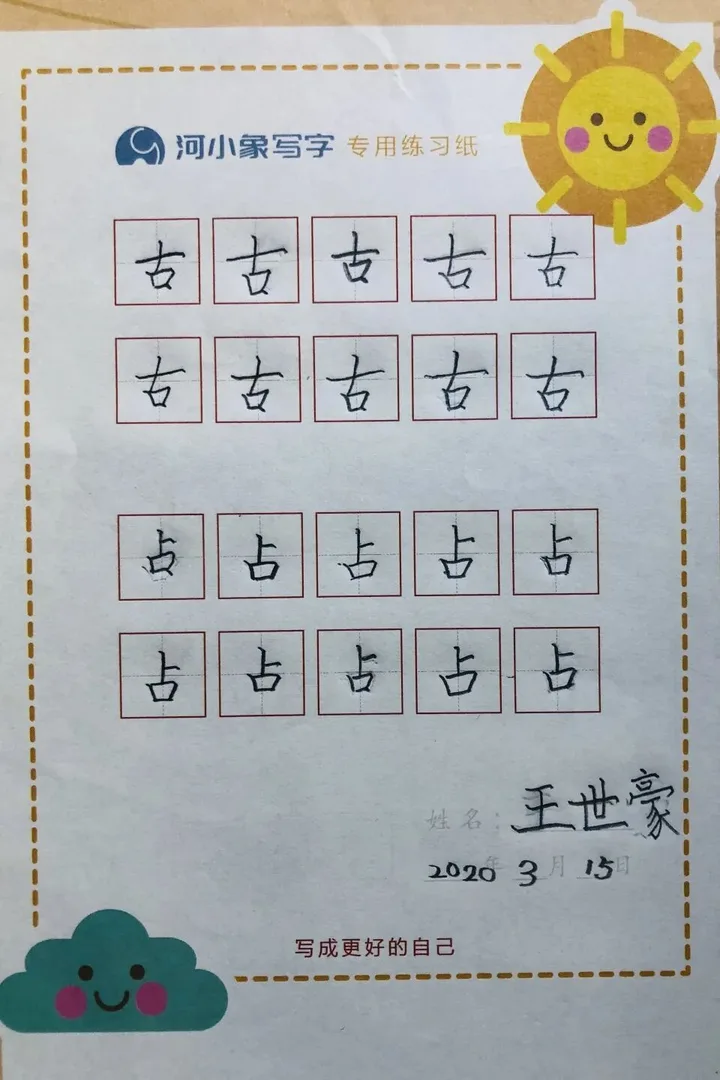 河小象写字 专用练习纸
古 古 古 古 古
古 古 古 古 古
占 占 占 占 占
占 占 占 占 占
姓名：王世豪
2020年3月15日
写成更好的自己